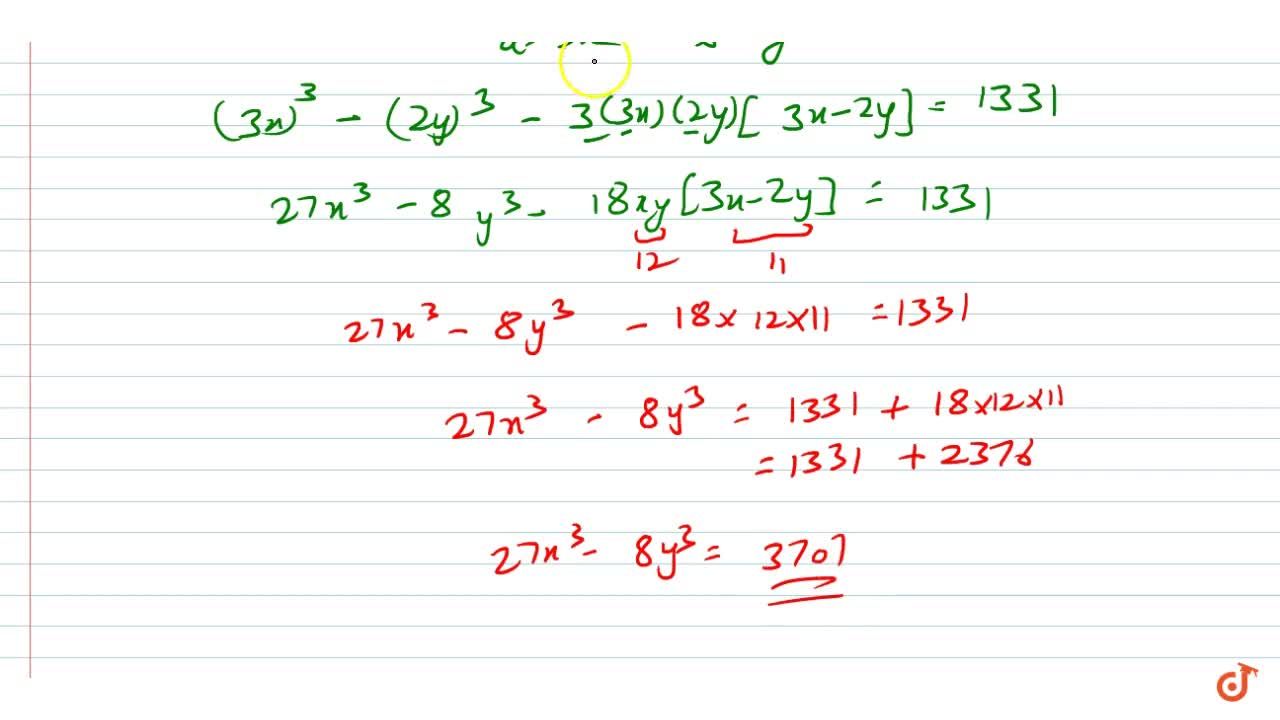 (3x)³ - (2y)³ - 3(3x)(2y)[3x-2y] = 1331
27x³ - 8y³ - 18xy[3x-2y] = 1331
12 11
27x³ - 8y³ - 18×12×11 = 1331
27x³ - 8y³ = 1331 + 18×12×11
= 1331 + 2376
27x³ - 8y³ = 3707